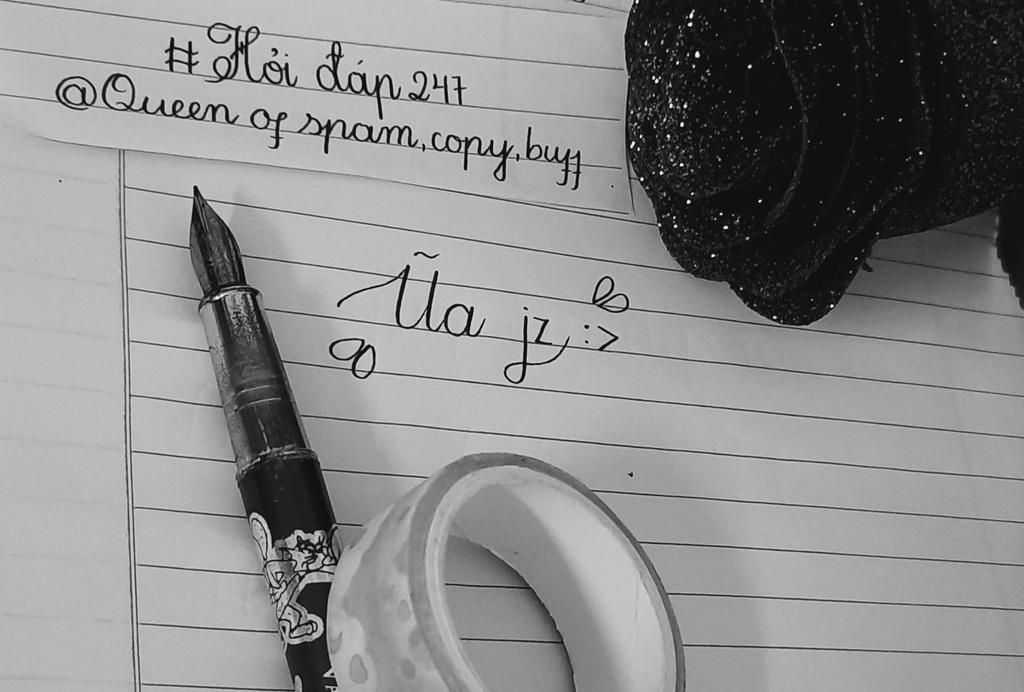 #Hỏi đáp 247
@Queen of spam,copy,buff
Ũa jz :>